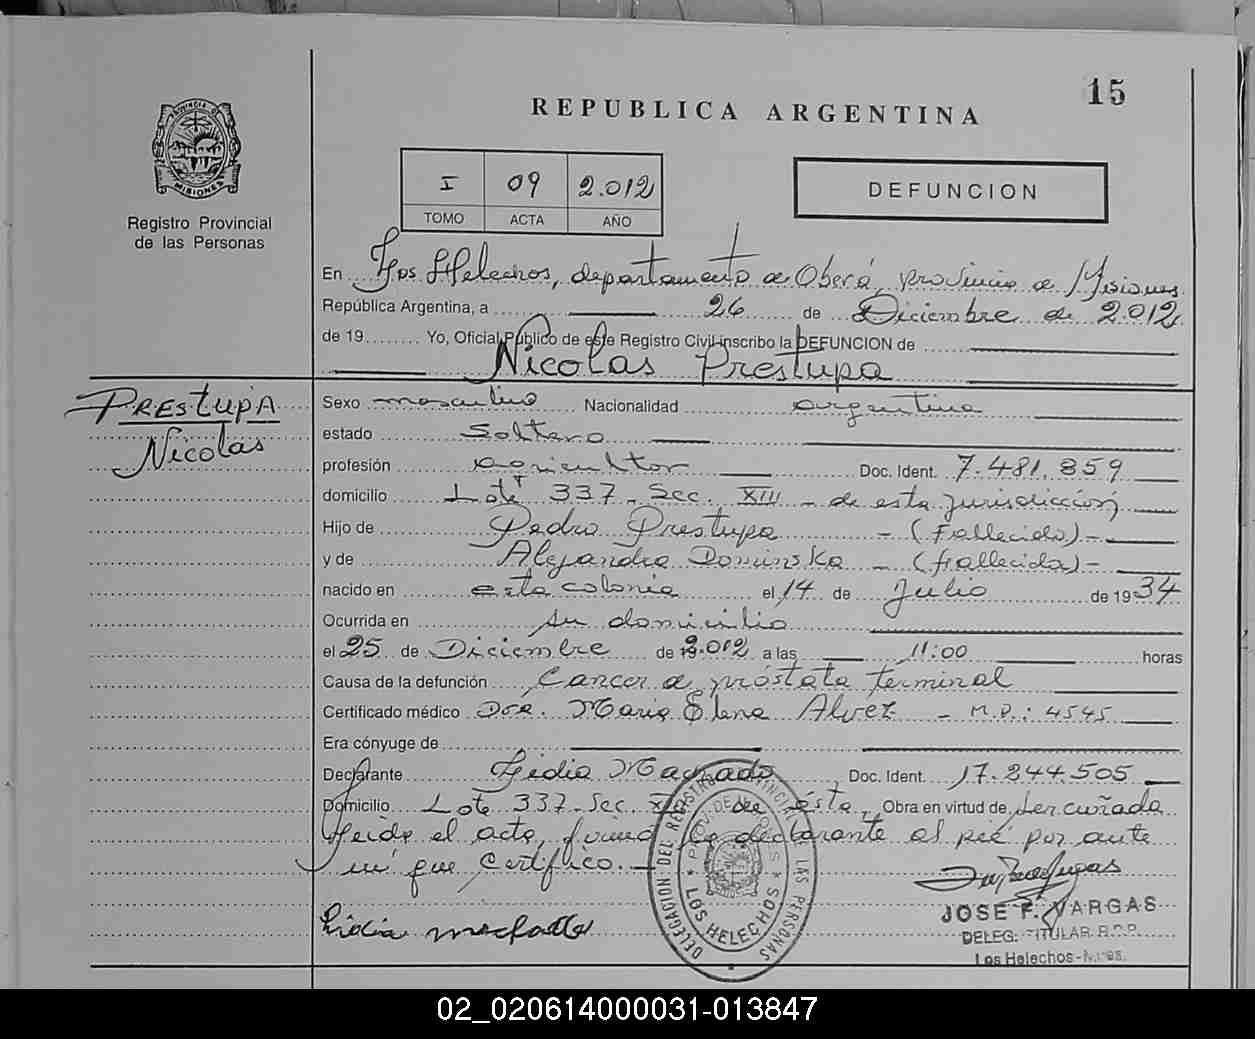 15
REPUBLICA ARGENTINA
PROVINCIA DE
MISIONES
Registro Provincial
de las Personas
I 09 2.012
TOMO ACTA AÑO
DEFUNCION
En Los Helechos, departamento de Oberá, provincia de Misiones
República Argentina, a 26 de Diciembre de 2.012
de 19 Yo, Oficial Público de este Registro Civil inscribo la DEFUNCION de
Nicolas Prestupa
PRESTUPA
Nicolas
Sexo masculino Nacionalidad argentina
estado Soltero
profesión agricultor Doc. Ident. 7.481.859
domicilio Lote 337 - Sec. XIII - de esta jurisdicción
Hijo de Pedro Prestupa - (Fallecido) -
y de Alejandra Dominska - (fallecida) -
nacido en esta colonia el 14 de Julio de 1934
Ocurrida en su domicilio
el 25 de Diciembre de 2.012 a las 11:00 horas
Causa de la defunción Cancer de próstata terminal
Certificado médico Dra. Maria Elena Alvez - M.P.: 4545
Era cónyuge de
Declarante Lidia Machado Doc. Ident. 17.244.505
Domicilio Lote 337 - Sec. de ésta, Obra en virtud de ser cuñada
Leida el acta, firma la declarante al pié por ante
mi que certifico.
Lidia machado
DELEGACION DEL REGISTRO PROVINCIAL DE LAS PERSONAS
PROV. DE MISIONES
LOS HELECHOS
JOSE F. VARGAS
DELEG. TITULAR R.P.P.
Los Helechos - Mnes.
02_020614000031-013847